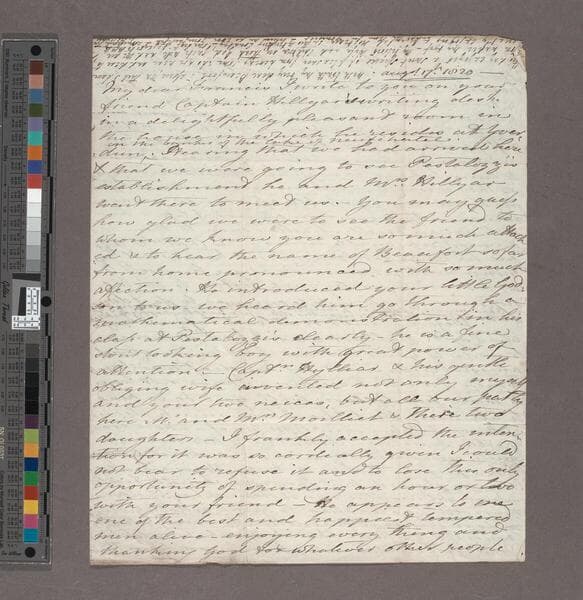 augst 17th 1820
My dear Francis I write to you on your
friend Captain Hillyar's writing desk
in a delightfully pleasant room in
the house in which he resides at Yver
on the borders of the lake of neufchatel
dun. Hearing that we had arrived here
& that we were going to see Pestalozzis
establishment he and Mrs Hillyar
went there to meet us. You may guess
how glad we were to see the friend to
whom we know you are so much attach
ed & to hear the name of Beaufort so far
from home pronounced with so much
affection. He introduced your little God
son to us. we heard him go through a
mathematical demonstration in his
class at Pestalozzis clearly – he is a fine
stout looking boy with great power of
attention – Captn Hylliar & his gentle
obliging wife invited not only myself
and your two neices, but all our party
here Mr and Mrs Moilliet & three two
daughters – I frankly accepted the invita-
tion for it was so cordially given I could
not bear to refuse it and to lose this only
opportunity of spending an hour or two
with your friend – He appears to me
one of the best and happiest tempered
men alive – enjoying every thing and
thanking God for whatever other people